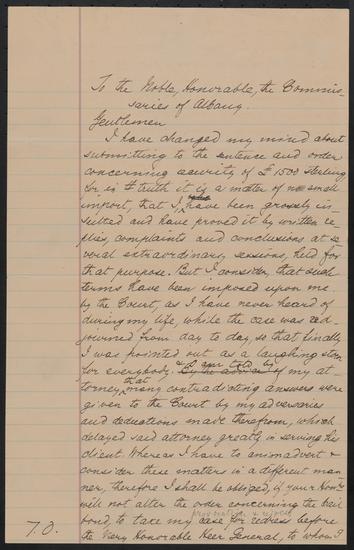 To the Noble, Honorable, the Commis-
saries of Albany.
Gentlemen
I have changed my mind about
submitting to the sentence and order
concerning security of £ 1500 sterling
for in truth it is a matter of no small
import, that I have been grossly in-
sulted and have proved it by written re-
plies, complaints and conclusions at se
veral extraordinary sessions, held for
that purpose. But I consider that such
terms have been imposed upon me
by the Court, as I have never heard of
during my life, while the case was ad-
journed from day to day, so that finally
I was pointed out as a laughing stock
for everybody. I am told by my at-
torney that many contradicting answers were
given to the Court by my adversaries
and deductions made therefrom, which
delayed said attorney greatly in serving his
client. Whereas I have to animadvert &
consider these matters in a different man
ner, therefore I shall be obliged, if your Honrs
will not alter the order concerning the bail
bond, to take my case for redress before
the Very Honorable Heer General, to whom I
T.O.